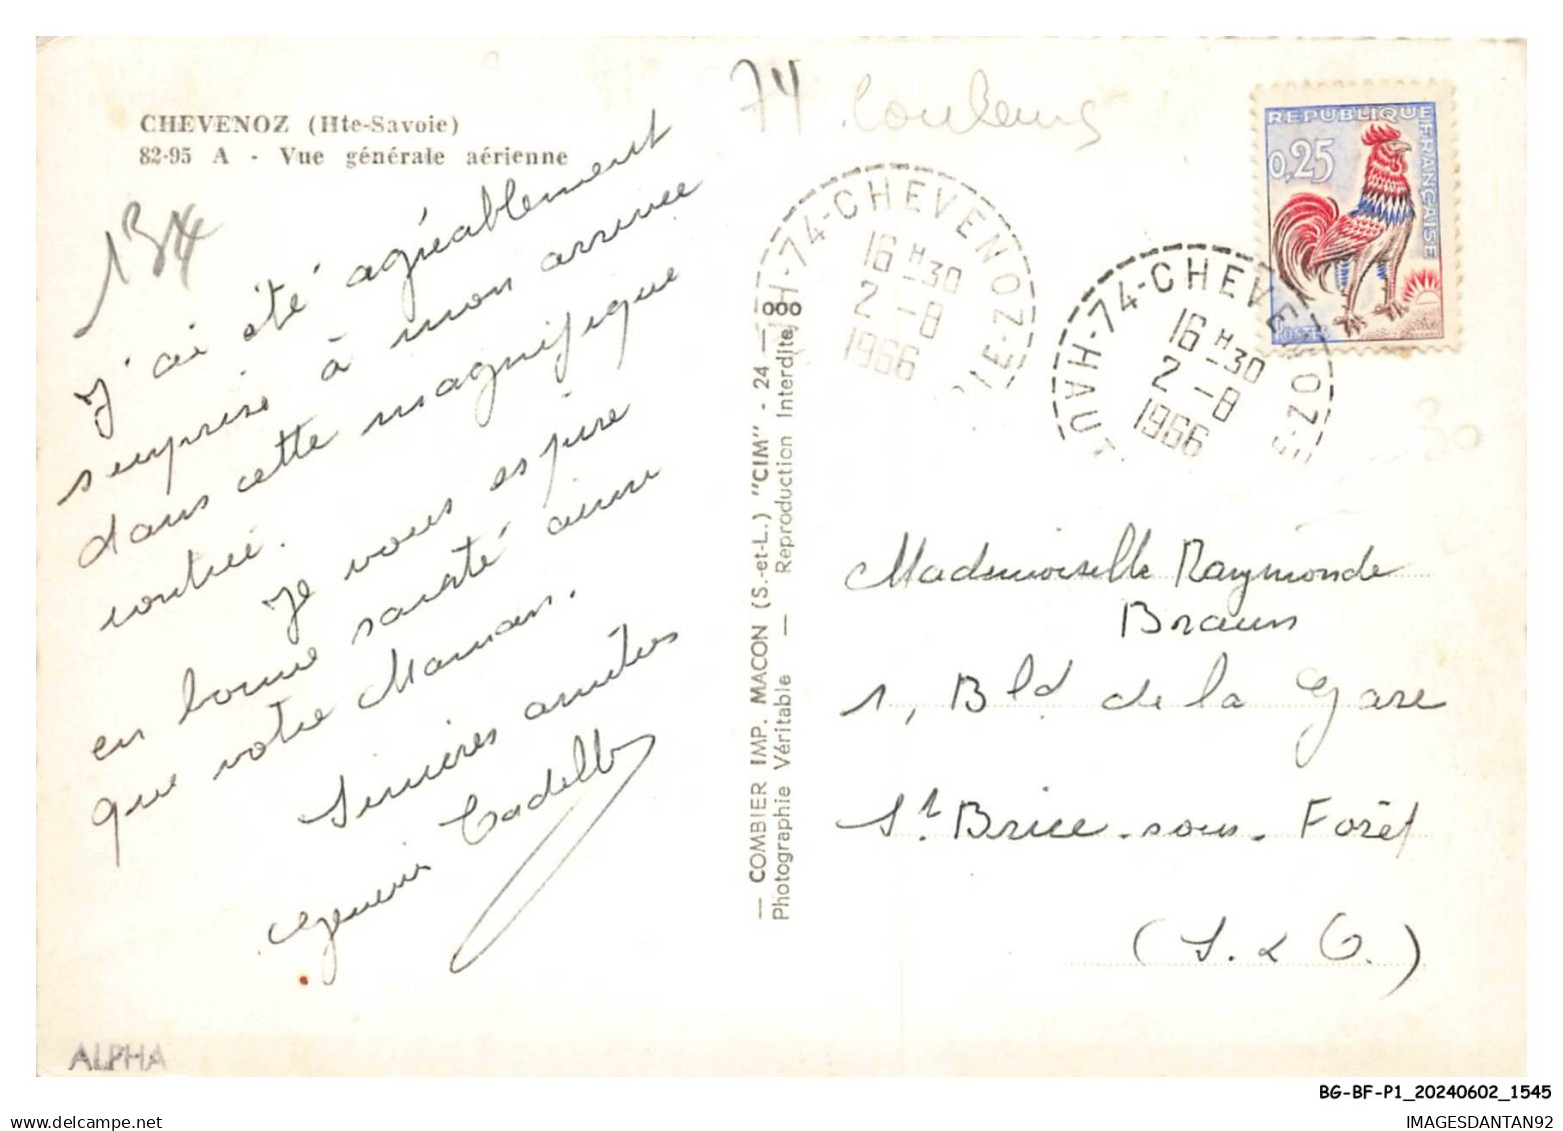 CHEVENOZ (Hte-Savoie)
82-95 A - Vue générale aérienne
134
J'ai été agréablement
surprise à mon arrivée
dans cette magnifique
contrée.
Je vous espère
en bonne santé ainsi
que votre Maman.
Sincères amitiés
— COMBIER IMP. MACON (S.-et-L.) "CIM" - 24 —
Photographie Véritable — Reproduction Interdite
74 Couleurs
REPUBLIQUE FRANÇAISE
0,25
POSTES
74-CHEVENOZ
16 H 30
2 -8
1966
HAUTE
74-CHEVENOZ
16 H 30
2 -8
1966
30
Mademoiselle Raymonde
Braun
1, Bld de la Gare
St Brice-sous-Forêt
(S. & O.)
ALPHA
BG-BF-P1_20240602_1545
IMAGESDANTAN92